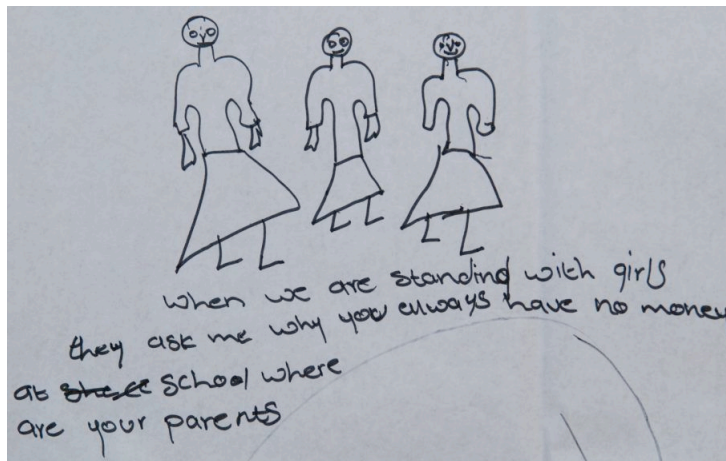 when we are standing with girls
they ask me why you always have no money
at school where
are your parents